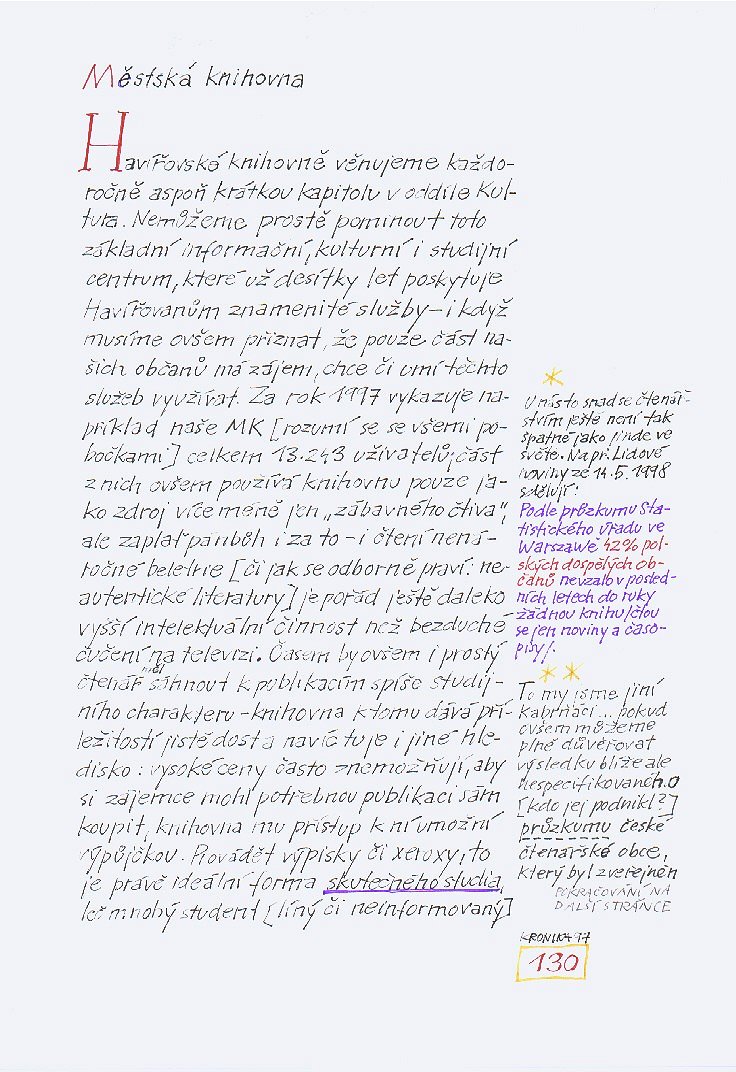 Městská knihovna
Havířovské knihovně věnujeme každo-
ročně aspoň krátkou kapitolu v oddíle Kul-
tura. Nemůžeme prostě pominout toto
základní informační, kulturní i studijní
centrum, které už desítky let poskytuje
Havířovanům znamenité služby – i když
musíme ovšem přiznat, že pouze část na-
šich občanů má zájem, chce či umí těchto
služeb využívat. Za rok 1997 vykazuje na-
příklad naše MK [rozumí se se všemi po-
bočkami] celkem 13.243 uživatelů; část
z nich ovšem používá knihovnu pouze ja-
ko zdroj více méně jen „zábavného čtiva",
ale zaplať pánbůh i za to – i čtení nená-
ročné beletrie [či jak se odborně praví: ne-
autentické literatury] je pořád ještě daleko
vyšší intelektuální činnost než bezduché
čučení na televizi. Časem by ovšem i prostý
čtenář měl sáhnout k publikacím spíše studij-
ního charakteru – knihovna k tomu dává pří-
ležitostí jistě dost a navíc tu je i jiné hle-
disko: vysoké ceny často znemožňují, aby
si zájemce mohl potřebnou publikaci sám
koupit, knihovna mu přístup k ní umožní
výpůjčkou. Provádět výpisky či xeroxy, to
je právě ideální forma skutečného studia,
leč mnohý student [líný či neinformovaný]
*
U nás to snad se čtenář-
stvím ještě není tak
špatné jako jinde ve
světě. Např. Lidové
noviny ze 14.5.1998
sdělují:
Podle průzkumu Sta-
tistického úřadu ve
Warszawě 42% pol-
ských dospělých ob-
čanů nevzalo v posled-
ních letech do ruky
žádnou knihu /čtou
se jen noviny a časo-
pisy/.
* *
To my jsme jiní
kabrňáci... pokud
ovšem můžeme
plně důvěřovat
výsledku blíže ale
nespecifikovaného
[kdo jej podnikl?]
průzkumu české
čtenářské obce,
který byl zveřejněn
POKRAČOVÁNÍ NA
DALŠÍ STRÁNCE
KRONIKA 97
130